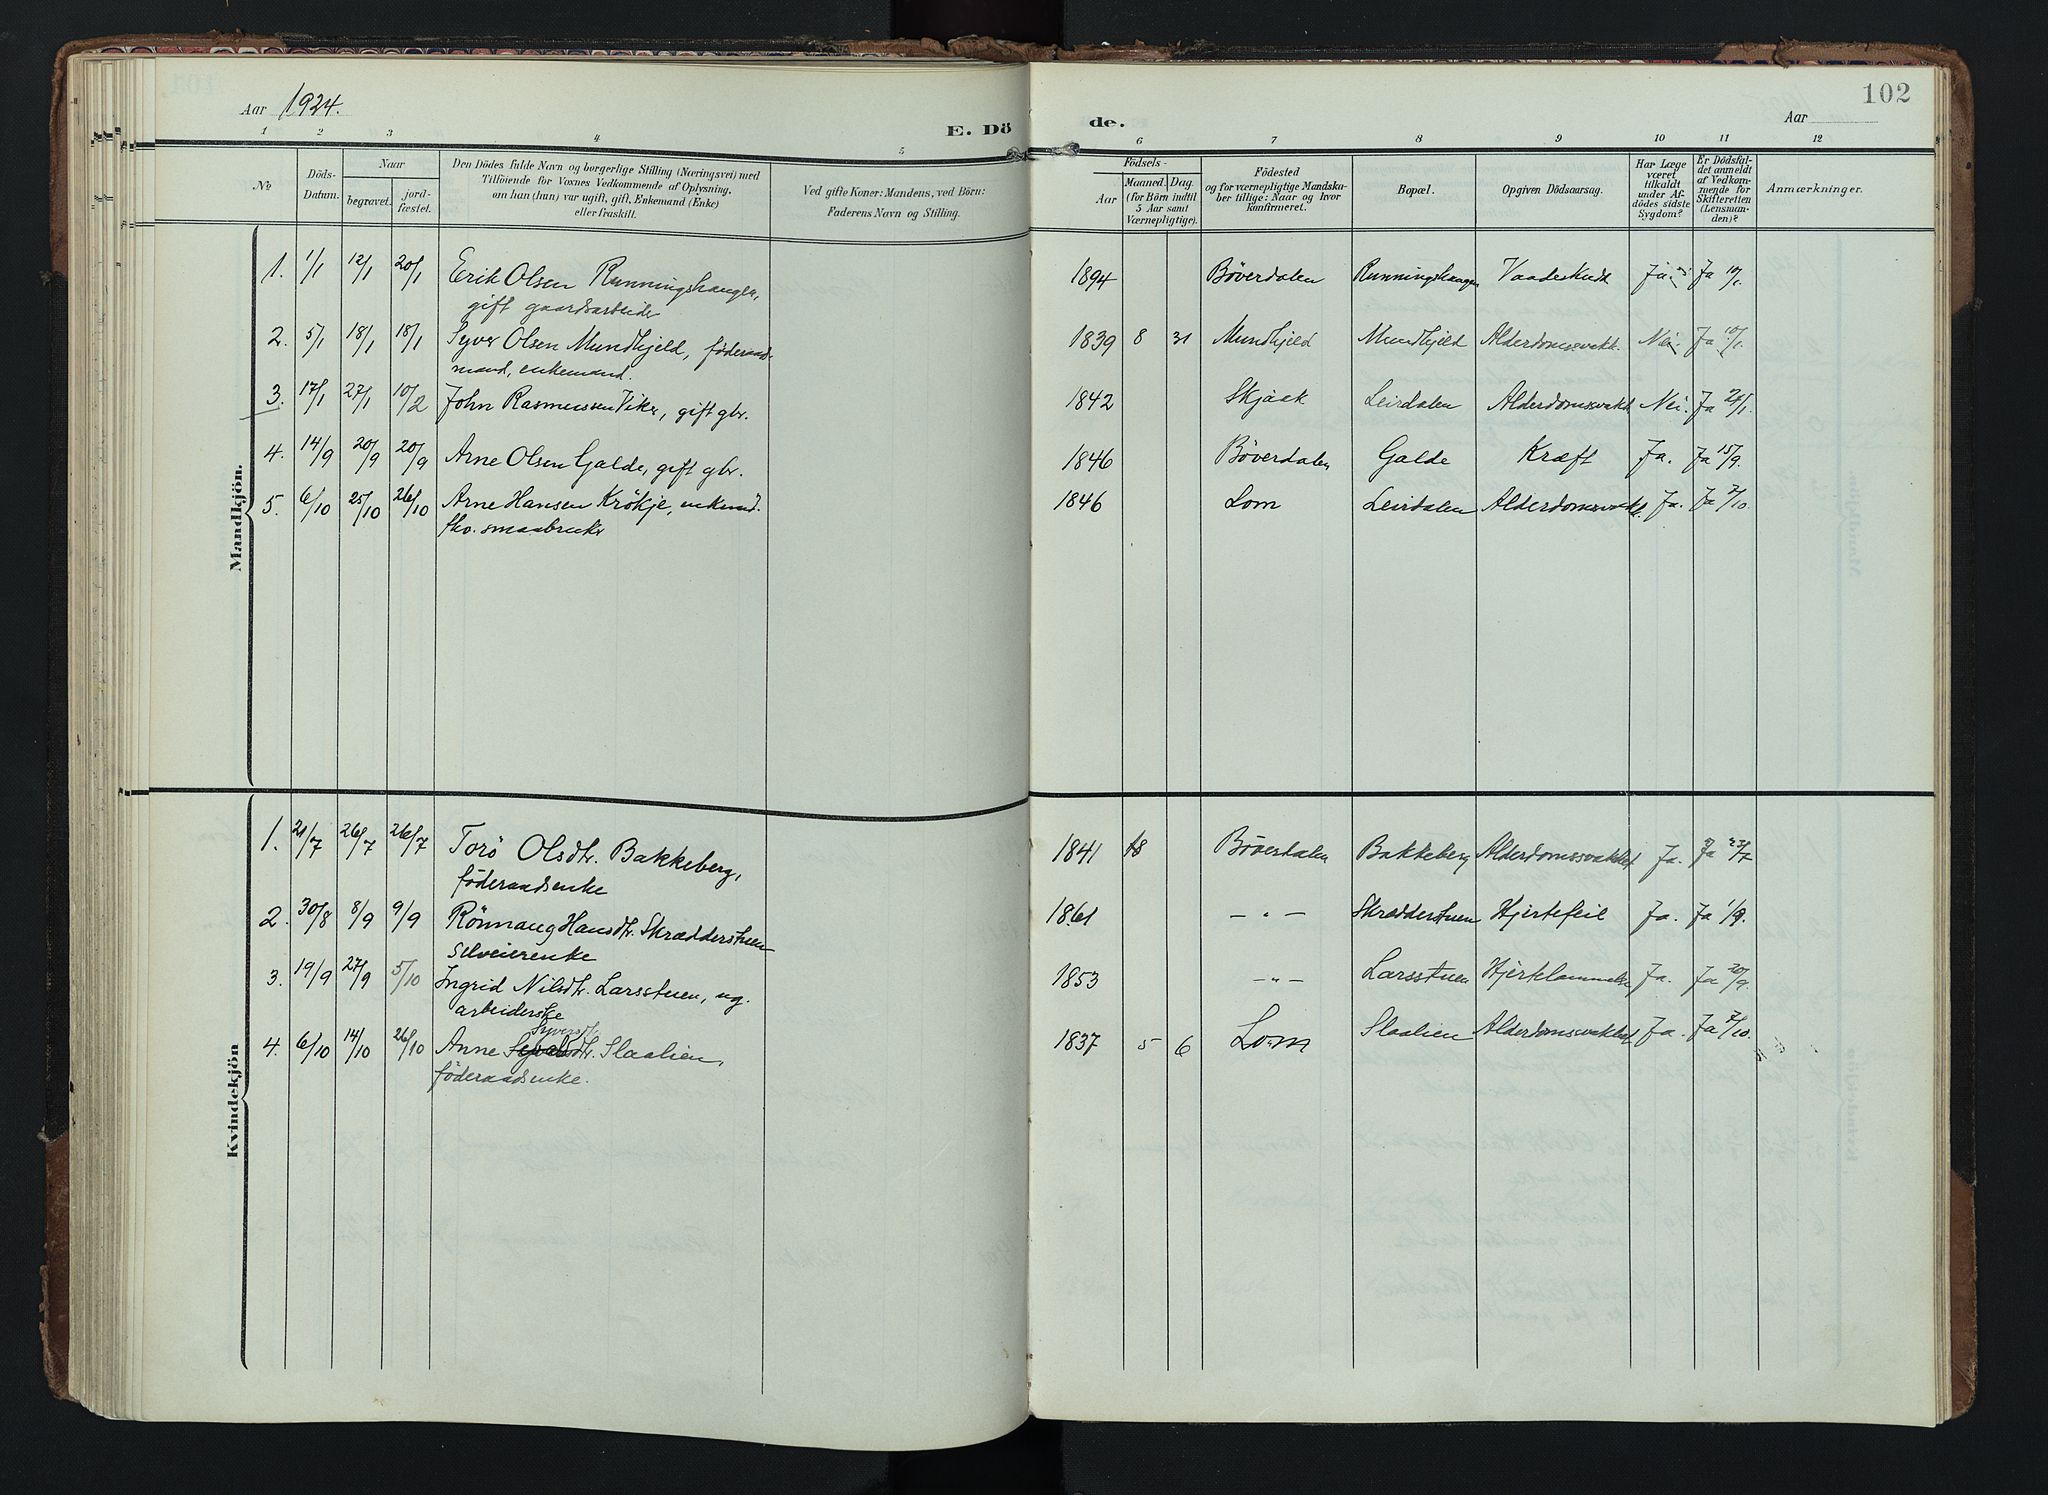 Aar 1924.
102
Aar
E. Dö
de.
1 2 3 4 5
6 7 8 9 10 11 12
No
Döds-
Datum.
Naar
begravet.
jord-
fæstet.
Den Dödes fulde Navn og borgerlige Stilling (Næringsvei) med
Tilföiende for Voxnes Vedkommende af Oplysning,
om han (hun) var ugift, gift, Enkemand (Enke)
eller fraskilt.
Ved gifte Koner: Mandens, ved Börn:
Faderens Navn og Stilling.
Födsels-
Aar
Maaned. Dag.
(for Börn indtil
5 Aar samt
Værnepligtige).
Födested
og for værnepligtige Mandska-
ber tillige: Naar og hvor
konfirmeret.
Bopæl.
Opgiven Dödsaarsag.
Har Læge
været
tilkaldt
under Af-
dödes sidste
Sygdom?
Er Dödsfal-
det anmeldt
af Vedkom-
mende for
Skifteretten
(Lensman-
den)?
Anmærkninger.
Mandkjön.
1. 1/1 12/1 20/1 Erik Olsen Runningshaugen, 1894 Böverdalen Runningshaugen Vaadeskudt Ja. Ja 10/1.
gift gaardsarbeider
2. 5/1 18/1 18/1 Syver Olsen Mundhjeld, föderaad- 1839 8 31 Mundhjeld Mundhjeld Alderdomssvakh. Nei. Ja 10/1.
mand, enkemand.
3. 17/1 27/1 10/2 John Rasmussen Vike, gift gbr. 1842 Skjaak Leirdalen Alderdomssvakh Nei. Ja 20/1.
4. 14/9 20/9 20/9 Arne Olsen Galde, gift gbr. 1846 Böverdalen Galde Kræft Ja. Ja 15/9.
5. 6/10 25/10 26/10 Arne Hansen Krökje, enkemd. 1846 Lom Leirdalen Alderdomssvakh. Ja. Ja 7/10.
fhv. smaabruker
Kvindekjön
1. 21/7 26/7 26/7 Torö Olsdtr. Bakkeberg, 1841 Böverdalen Bakkeberg Alderdomssvakhet Ja. Ja 23/7
föderaadsenke
2. 30/8 8/9 9/9 Rönnaug Hansdtr. Skrædderstuen 1861 — " — Skrædderstuen Hjertefeil Ja. Ja 1/9.
selveierenke
3. 19/9 27/9 5/10 Ingrid Nilsdtr. Larsstuen, ug. 1853 -"- Larsstuen Hjertelammelse Ja. Ja 20/9.
arbeiderske
Syversdtr.
4. 6/10 14/10 26/10 Anne Slaalien, 1837 5 6 Lom Slaalien Alderdomssvakhet Ja. Ja 7/10.
föderaadsenke.